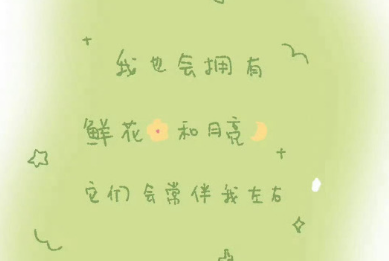 我也会拥有
鲜花🌼和月亮🌙
它们会常伴我左右